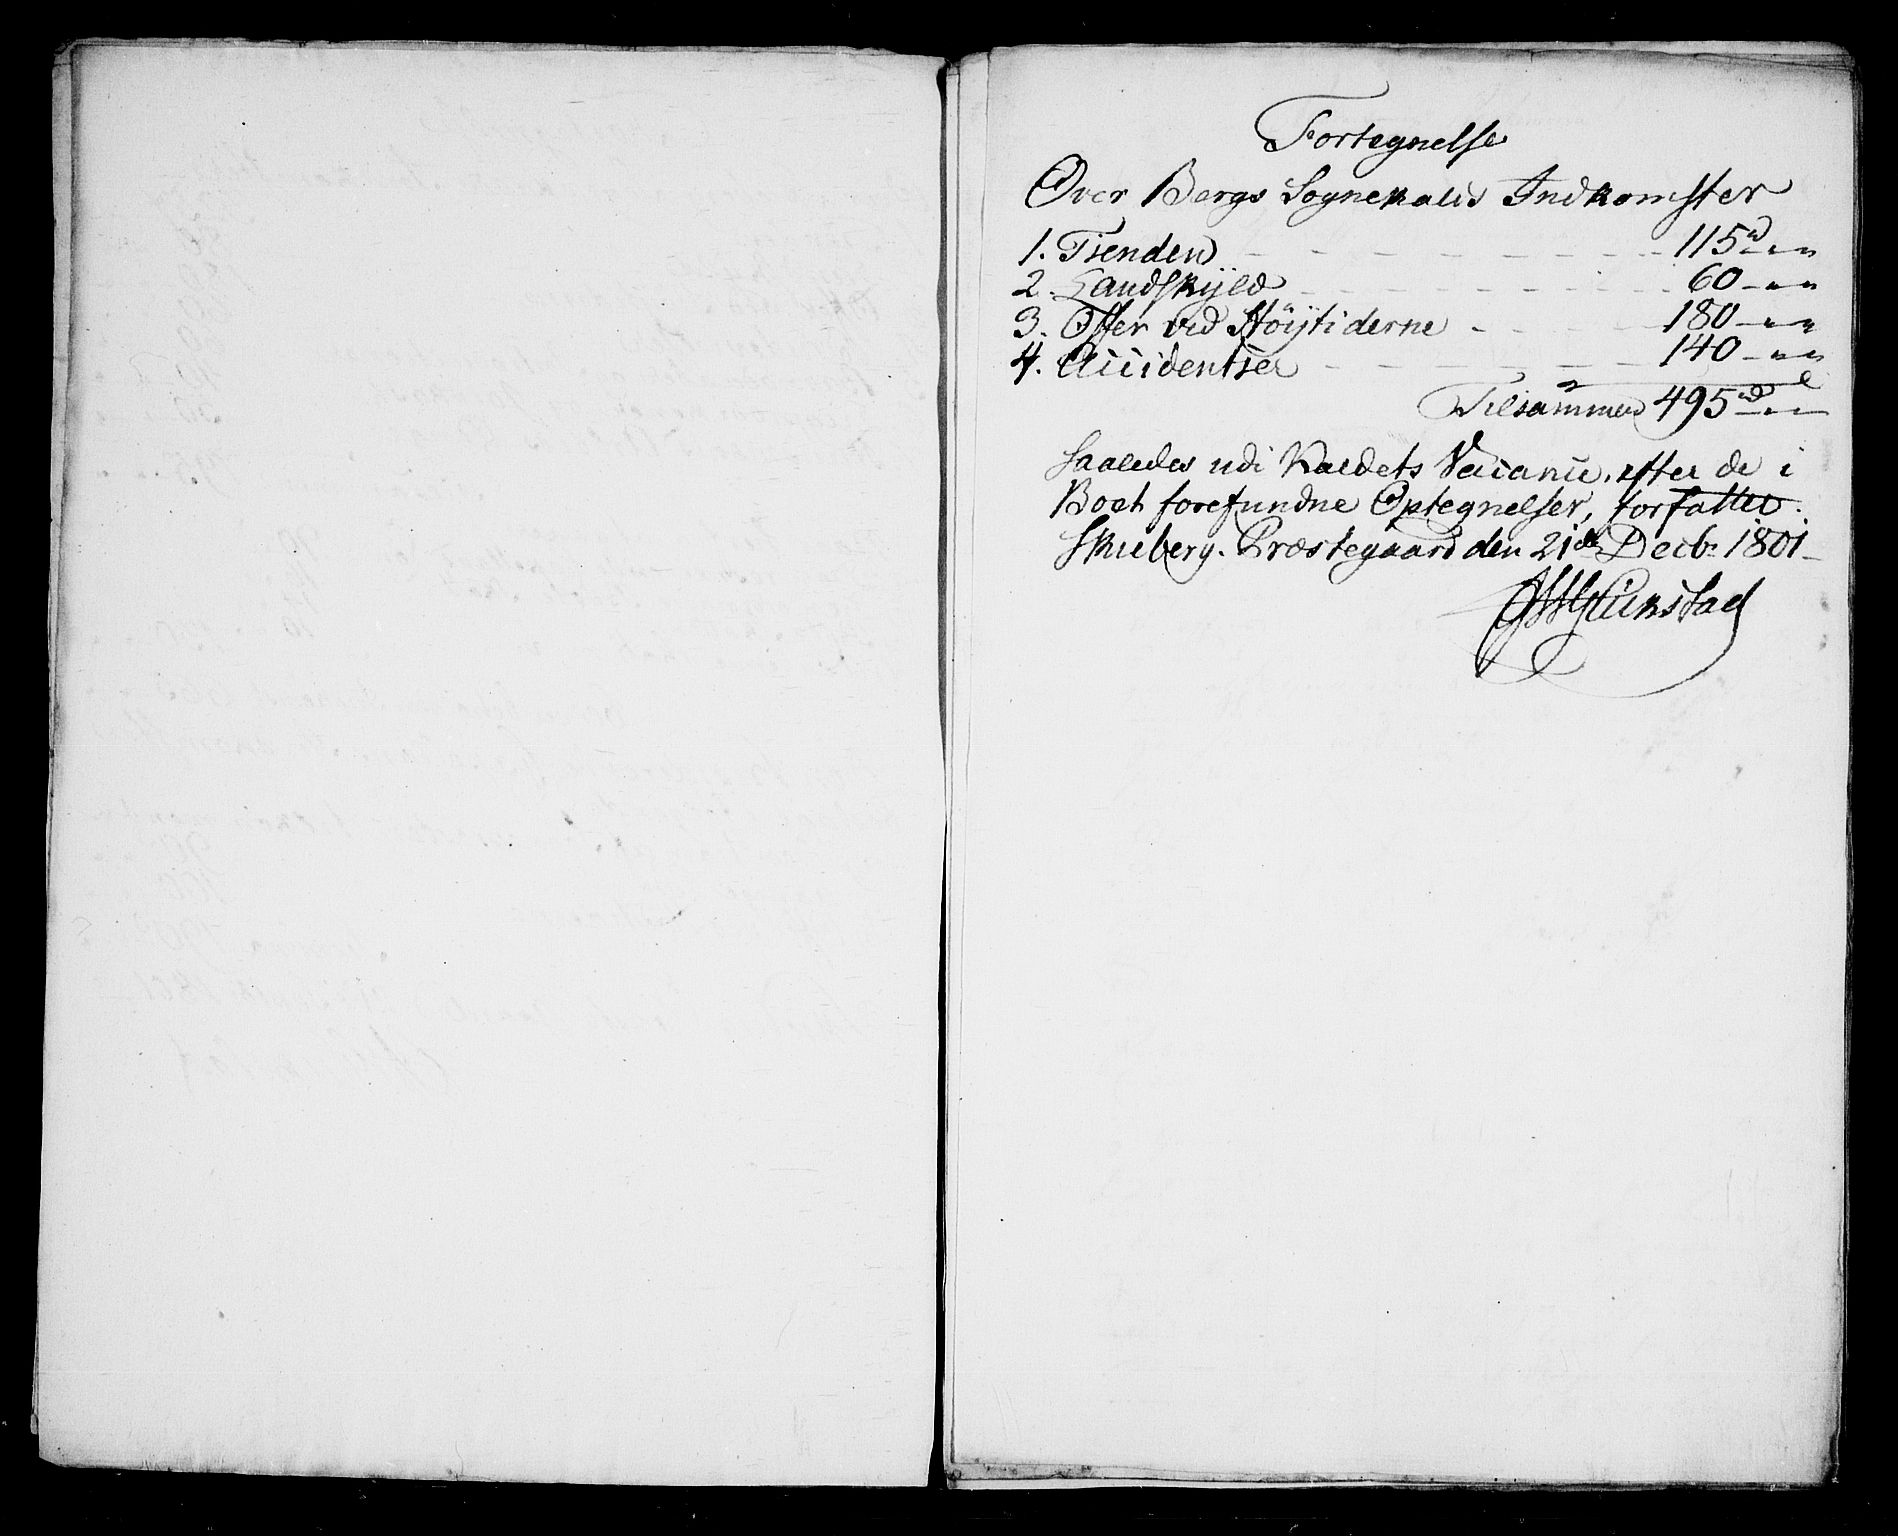 Fortegnelse
Over Bergs Sognekalds Indkomster
1. Tienden - - - - - - - 115rd „ „
2. Landskyld - - - - - - 60 - „ „
3. Offer ved Höijtiderne - - - 180 - „ „
4. Accidentser - - - - - - 140 - „ „
Tilsammen 495rd - -
Saaledes udi Kaldets Vacance, efter de i
Boet forefundne Optegnelser, forfattet.
Skieberg. Præstegaard den 21de Decb: 1801 -